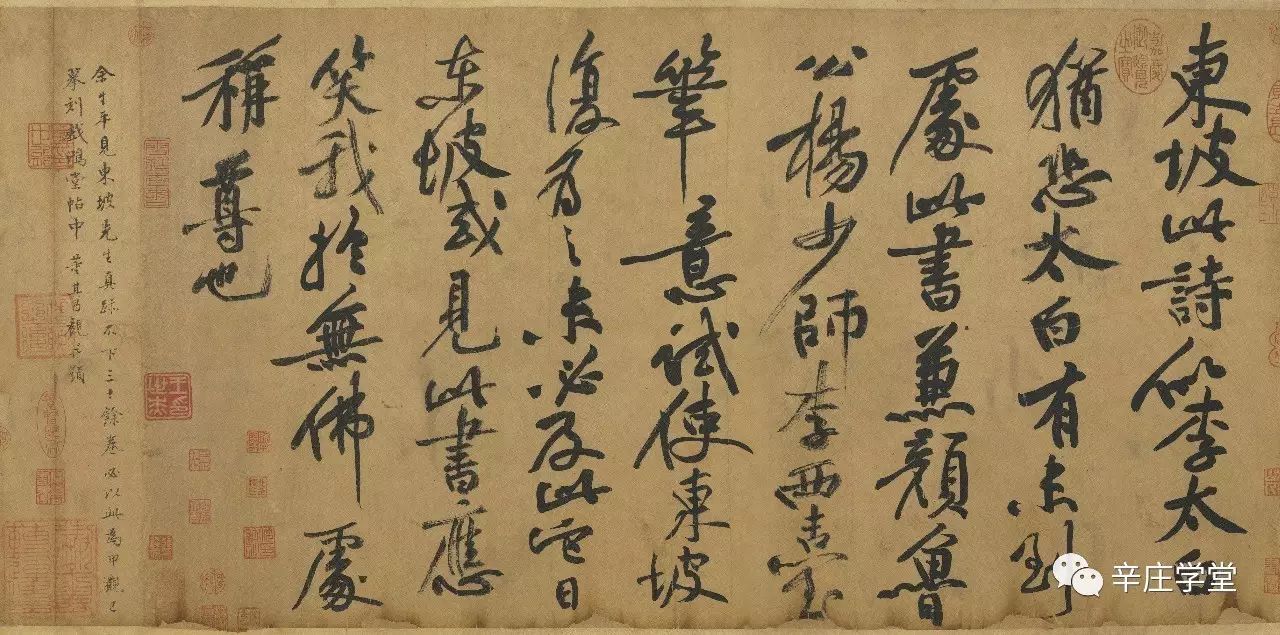 東坡此詩似李太白
猶恐太白有未到
處此書兼顏魯
公楊少師李西臺
筆意試使東坡
復為之未必及此它日
東坡或見此書應
笑我於無佛處
稱尊也
余生平見東坡先生真跡不下三十餘卷必以此為甲觀已
摹刻戲鴻堂帖中 董其昌觀并題
辛庄学堂